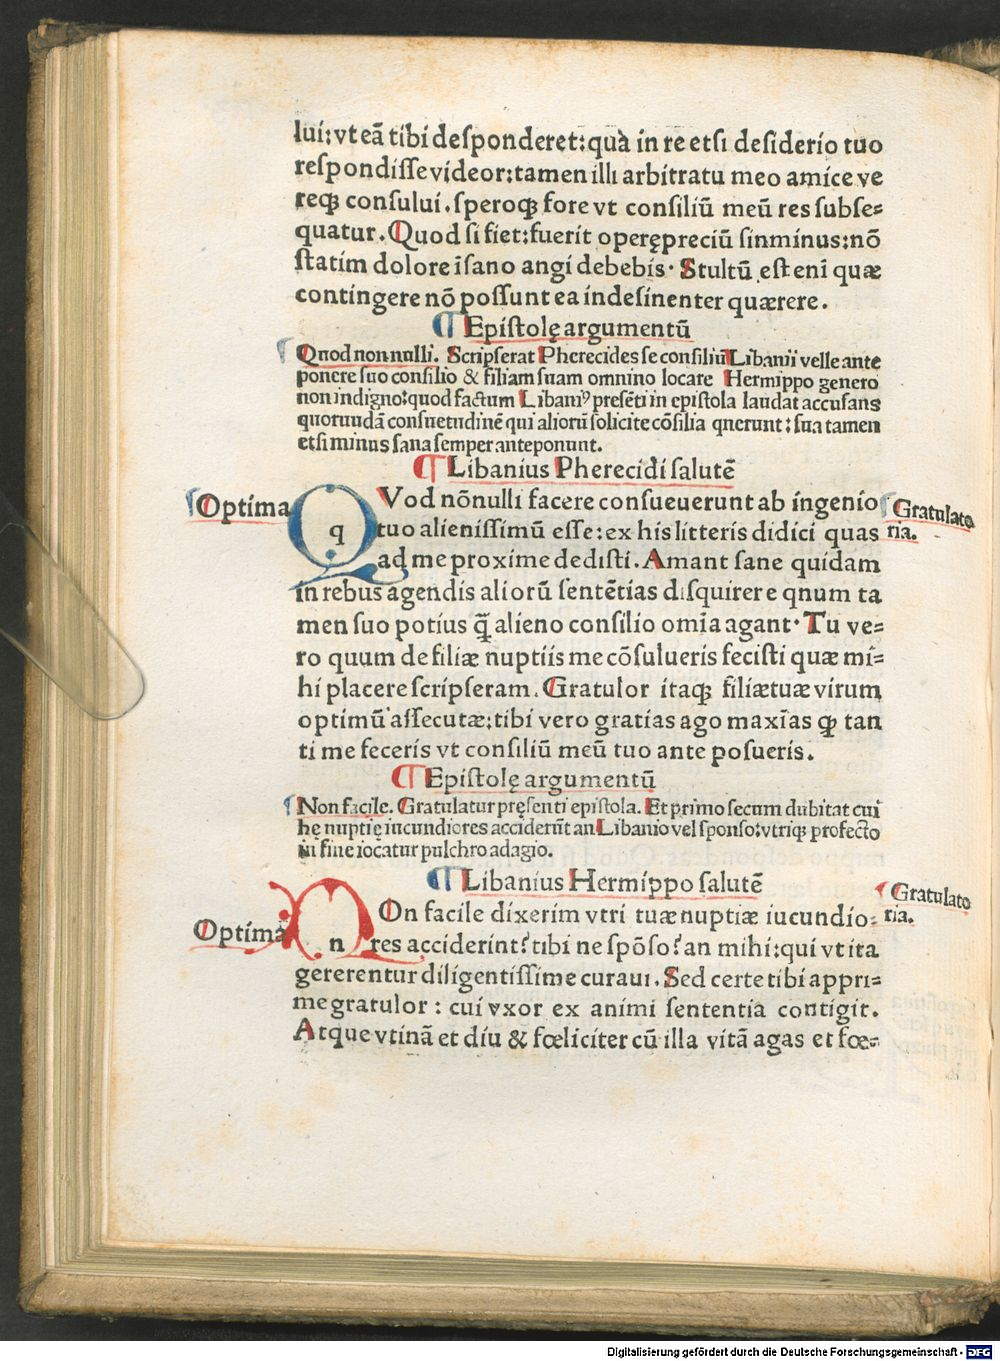 lui: vt eã tibi desponderet: quà in re etsi desiderio tuo
respondisse videor: tamen illi arbitratu meo amice ve
reqꝫ consului. speroqꝫ fore vt consiliũ meũ res subse⸗
quatur. Quod si fiet: fuerit operępreciũ sinminus: nõ
statim dolore ĩsano angi debebis. Stultũ est eni quæ
contingere nõ possunt ea indesinenter quærere.
¶ Epistolę argumentũ
Quod nonnulli. Scripserat Pherecides se consiliũ Libanii velle ante
ponere suo consilio & filiam suam omnino locare Hermippo genero
non indigno: quod factum Libaniꝰ presẽti in epistola laudat accusans
quorundã consuetudinẽ qui aliorũ solicite cõsilia qnerunt: sua tamen
etsi minus sana semper anteponunt.
¶ Libanius Pherecidi salutẽ
Optima
q
QVod nõnulli facere consueuerunt ab ingenio
tuo alienissimũ esse: ex his litteris didici quas
ad me proxime dedisti. Amant sane quidam
in rebus agendis aliorũ sentẽtias disquirere qnum ta
men suo potius q̃ alieno consilio omĩa agant. Tu ve⸗
ro quum de filiæ nuptiis me cõsulueris fecisti quæ mi⸗
hi placere scripseram. Gratulor itaqꝫ filiætuæ virum
optimũ assecutæ: tibi vero gratias ago maxĩas qꝫ tan
ti me feceris vt consiliũ meũ tuo ante posueris.
Gratulato
ria.
¶ Epistolę argumentũ
Non facile. Gratulatur pręsenti epistola. Et primo secum dubitat cui
hę nuptię iucundiores acciderũt an Libanio vel sponso: vtriqꝫ profecto
in fine iocatur pulchro adagio.
¶ Libanius Hermippo salutẽ
Optima
n
NOn facile dixerim vtri tuæ nuptiæ iucundio⸗
res acciderint? tibi ne spõso? an mihi: qui vt ita
gererentur diligentissime curaui. Sed certe tibi appri⸗
me gratulor: cui vxor ex animi sententia contigit.
Atque vtinã et diu & fœliciter cũ illa vitã agas et fœ⸗
Gratulato
ria.
Digitalisierung gefördert durch die Deutsche Forschungsgemeinschaft - DFG